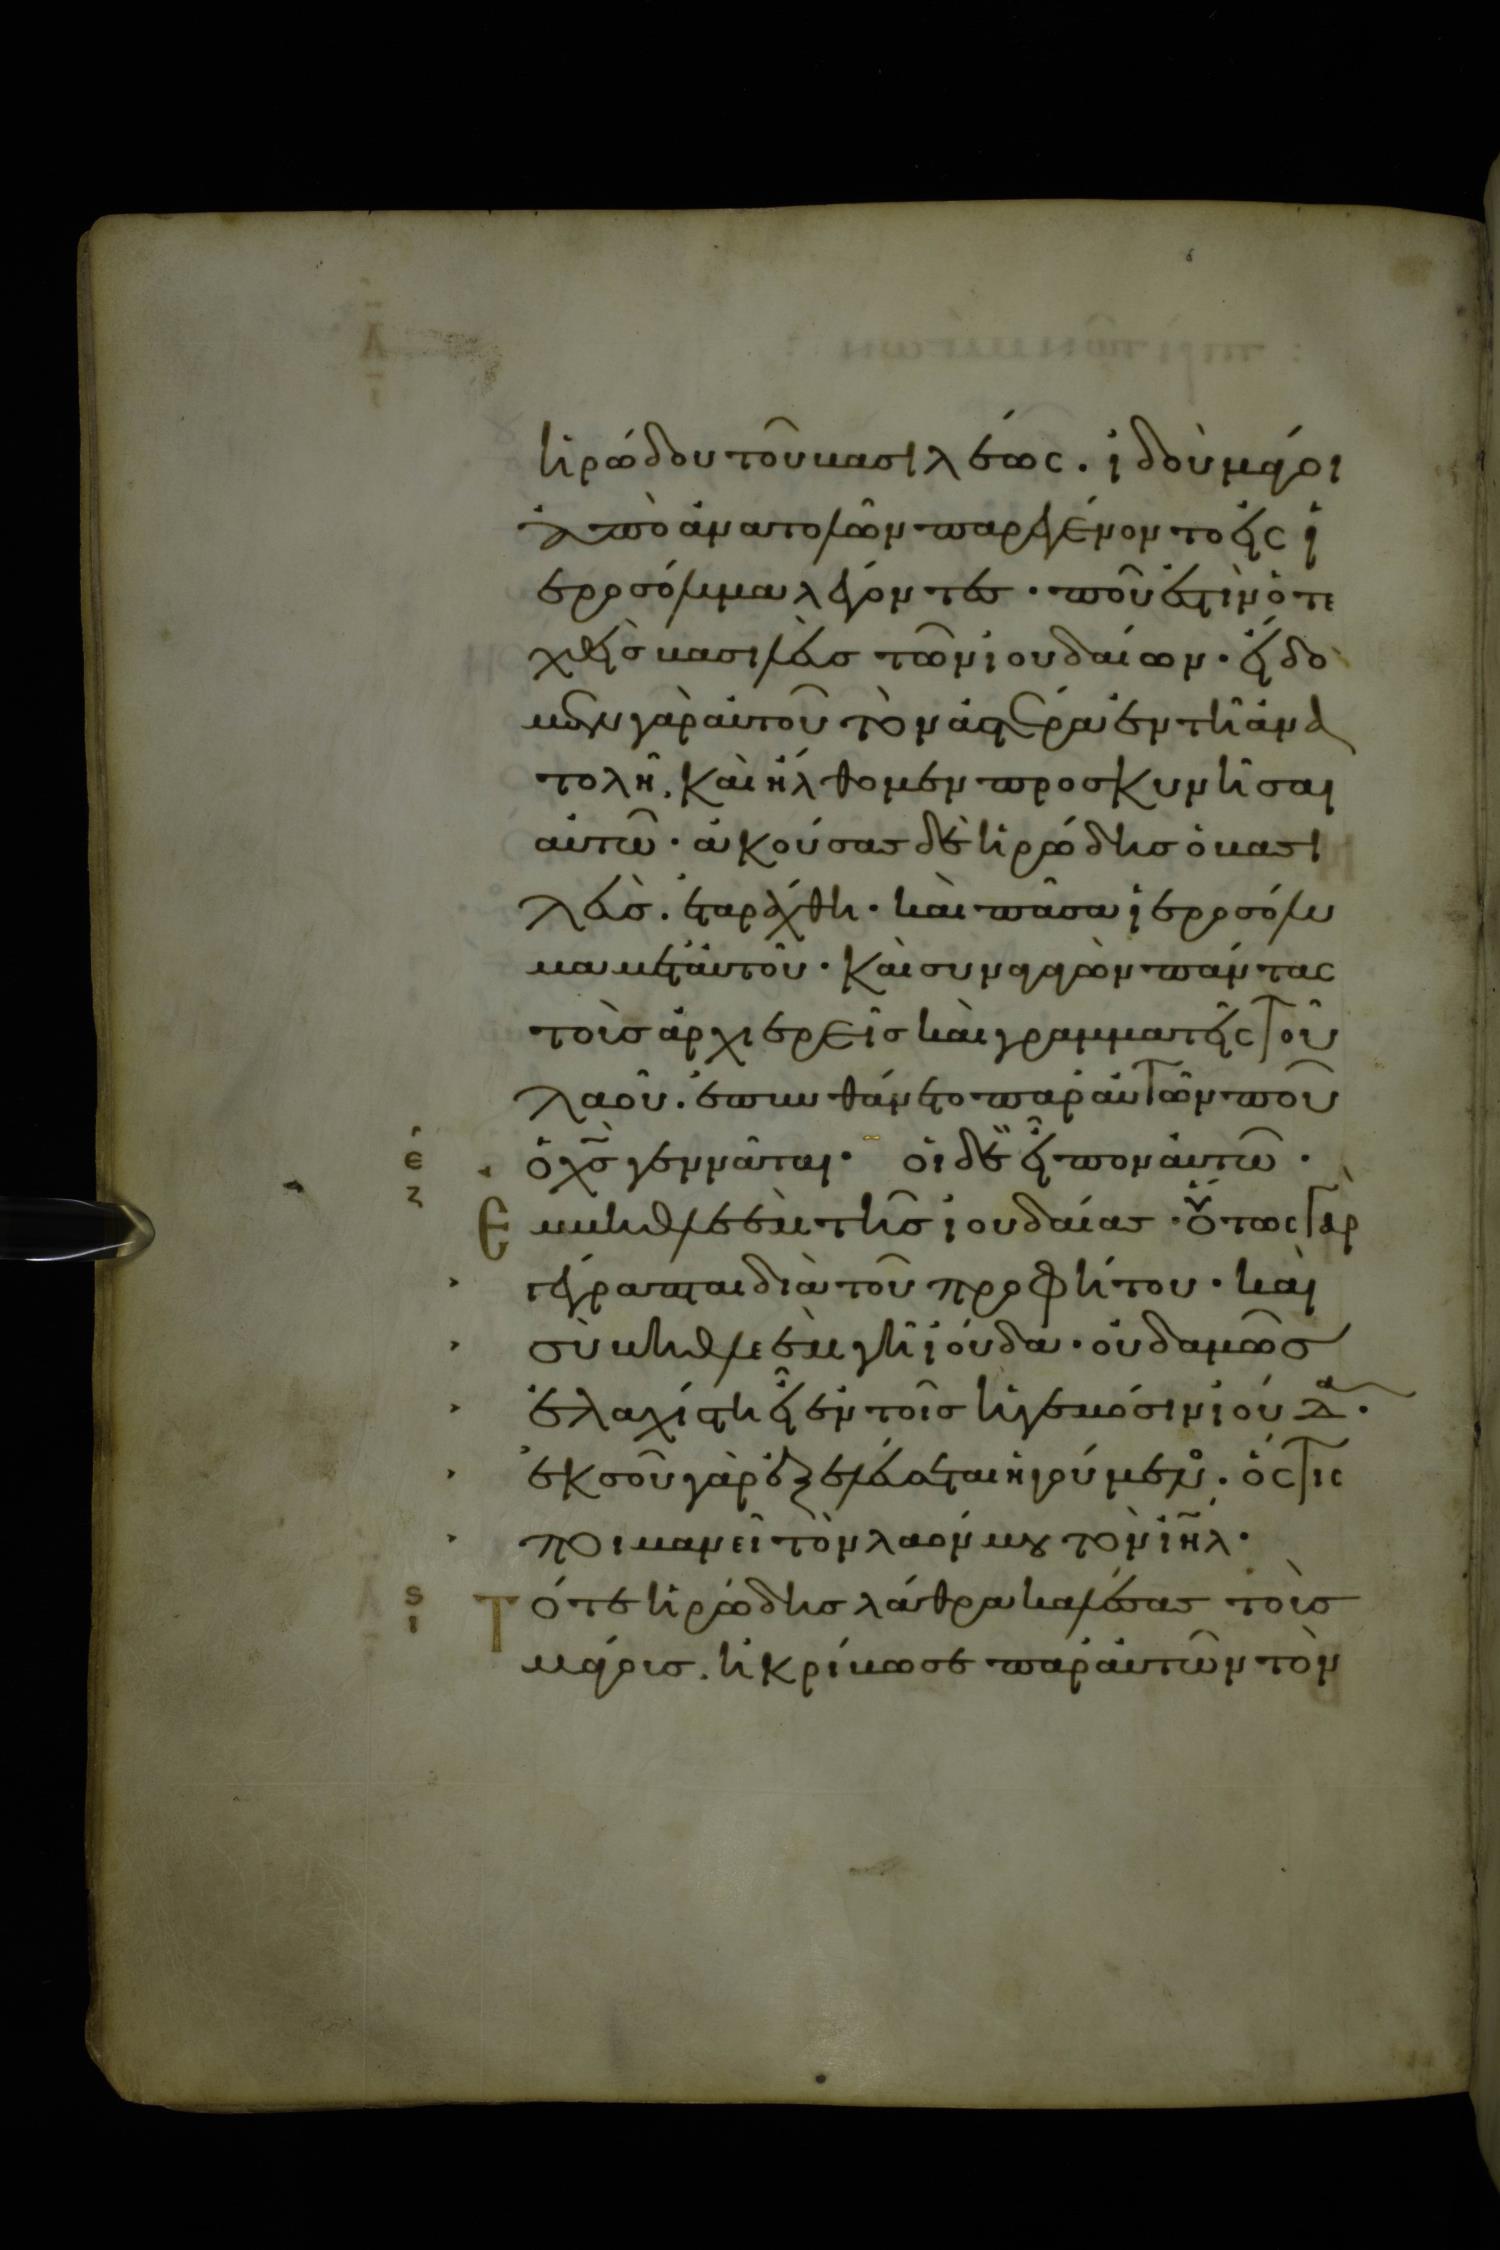 ἡρώδου τοῦ βασιλέως. ἰδοὺ μάγοι
ἀπὸ ἀνατολῶν παρεγένοντο εἰς ἱ
εροσόλυμα λέγοντες· ποῦ ἐστὶν ὁ τε
χθεὶς βασιλεὺς τῶν ἰουδαίων· εἴδο
μεν γὰρ αὐτοῦ τὸν ἀστέρα ἐν τῆ ἀνα
τολῆ, καὶ ἤλθομεν προσκυνῆσαι
αὐτῶ· ἀκούσας δὲ ἡρώδης ὁ βασι
λεὺς. ἐταράχθη· καὶ πᾶσα ἱεροσόλυ
μα μετ' αὐτοῦ· καὶ συναγαγὼν πάντας
τοὺς ἀρχιερεῖς καὶ γραμματεῖς τοῦ
λαοῦ. ἐπυνθάνετο παρ' αὐτῶν ποῦ
ε ὁ χ̅ς̅ γεννᾶται· οἱ δὲ εἶπον αὐτῶ·
ζ Ἐν βηθλεὲμ τῆς ἰουδαίας· οὕτως γὰρ
γέγραπται διὰ τοῦ προφήτου· καὶ
σὺ βηθλεὲμ γῆ ἰούδα· οὐδαμῶς
ἐλαχίστη εἶ ἐν τοῖς ἡγεμόσιν ἰούδα·
ἐκ σοῦ γὰρ ἐξελεύσεται ἡγούμενος· ὅστις
ποιμανεῖ τὸν λαόν μου τὸν ι̅η̅λ̅·
ς ι Τότε ἡρώδης λάθρα καλέσας τοὺς
μάγους. ἠκρίβωσε παρ' αὐτῶν τὸν